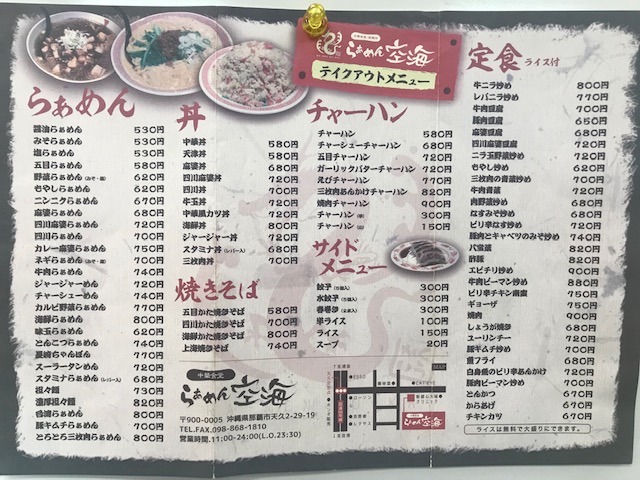 中華食堂
らぁめん 空海
テイクアウトメニュー
らぁめん
醤油らぁめん 530円
みそらぁめん 530円
塩らぁめん 530円
五目らぁめん 580円
野菜らぁめん(みそ・塩) 620円
もやしらぁめん 620円
ニンニクらぁめん 670円
麻婆らぁめん 680円
四川麻婆らぁめん 720円
四川らぁめん 700円
カレー麻婆らぁめん 750円
ネギらぁめん 700円
牛肉らぁめん 740円
ジャージャーめん 720円
チャーシューめん 740円
カルビ野菜らぁめん 770円
海鮮らぁめん 800円
味玉らぁめん 620円
とんこつらぁめん 740円
長崎ちゃんぽん 770円
スーラータンめん 720円
スタミナらぁめん(レバー入) 680円
担々麺 720円
濃厚担々麺 820円
豚キムチらぁめん 700円
とろとろ三枚肉らぁめん 800円
丼
中華丼 580円
天津丼 580円
麻婆丼 680円
四川麻婆丼 720円
四川丼 700円
牛玉丼 720円
中華風カツ丼 720円
海鮮丼 800円
ジャージャー丼 720円
スタミナ丼(レバー入) 680円
三枚肉丼 700円
焼きそば
五目かた焼そば 580円
四川かた焼そば 700円
海鮮かた焼そば 800円
上海焼そば 740円
チャーハン
チャーハン 580円
チャーシューチャーハン 680円
五目チャーハン 720円
ガーリックバターチャーハン 720円
えびチャーハン 770円
三枚肉あんかけチャーハン 820円
焼肉チャーハン 900円
チャーハン 300円
チャーハン 150円
サイドメニュー
餃子(5個入) 300円
水餃子(5個入) 300円
春巻き(2本入) 300円
半ライス 100円
ライス 150円
スープ 20円
定食 ライス付
牛ニラ炒め 800円
レバニラ炒め 770円
牛肉豆腐 700円
豚肉豆腐 650円
麻婆豆腐 680円
四川麻婆豆腐 720円
ニラ玉野菜炒め 720円
もやし炒め 620円
三枚肉の青菜炒め 700円
牛肉青菜 720円
肉野菜炒め 680円
なすみそ炒め 680円
ピリ辛なす炒め 720円
豚肉とキャベツのみそ炒め 740円
八宝菜 820円
酢豚 820円
エビチリ炒め 900円
牛肉ピーマン炒め 880円
ピリ辛チキン南蛮 750円
ギョーザ 750円
焼肉 900円
しょうが焼き 680円
ユーリンチー 720円
豚キムチ炒め 700円
魚フライ 680円
白身魚のピリ辛あんかけ 720円
豚肉ピーマン炒め 700円
とんかつ 670円
からあげ 670円
チキンカツ 670円
ライスは無料で大盛りにできます。
中華食堂
らぁめん空海
〒900-0005 沖縄県那覇市天久2-29-19
TEL.FAX.098-868-1810
営業時間.11:00-24:00(L.O.23:30)